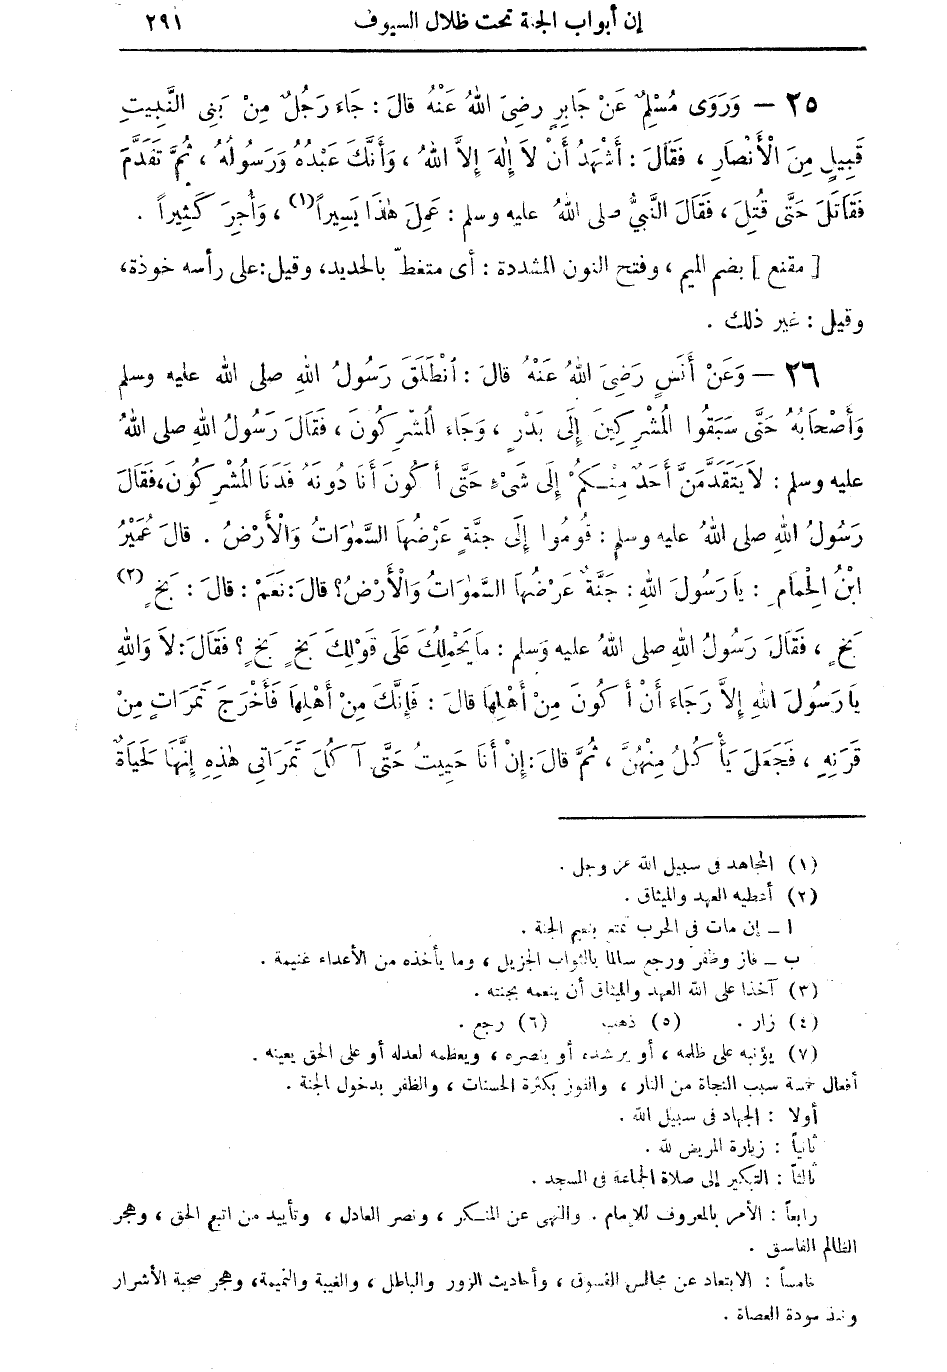 إن أبواب الجنة تحت ظلال السيوف ٢٩١
٢٥ — وَرَوَى مُسْلِمٌ عَنْ جَابِرٍ رضىَ اللهُ عَنْهُ قالَ : جَاءَ رَجُلٌ مِنْ بَنِى النَّبِيتِ
قَبِيلٍ مِنَ الْأَنْصَارِ ، فَقَالَ : أَشْهَدُ أَنْ لاَ إِلٰهَ إِلاَّ اللهُ ، وَأَنَّكَ عَبْدُهُ وَرَسُولُهُ ، ثُمَّ تَقَدَّمَ
فَقَاتَلَ حَتَّى قُتِلَ ، فَقَالَ النَّبِيُّ صلى اللهُ عليه وسلم : عَمِلَ هٰذَا يَسِيراً (١) ، وَأُجِرَ كَثِيراً .
[ مقنع ] بضم الميم ، وفتح النون المشددة : أى متغطّ بالحديد، وقيل: على رأسه خوذة،
وقيل : غير ذلك .
٢٦ — وَعَنْ أَنَسٍ رَضِىَ اللهُ عَنْهُ قالَ : ٱنْطَلَقَ رَسُولُ اللهِ صلى الله عليه وسلم
وَأَصْحَابُهُ حَتَّى سَبَقُوا الْمُشْرِكِينَ إِلَى بَدْرٍ ، وَجَاءَ الْمُشْرِكُونَ ، فَقَالَ رَسُولُ اللهِ صلى اللهُ
عليه وسلم : لاَ يَتَقَدَّمَنَّ أَحَدٌ مِنْكُمْ إِلَى شَىْءٍ حَتَّى أَكُونَ أَنَا دُونَهُ فَدَنَا الْمُشْرِكُونَ، فَقَالَ
رَسُولُ اللهِ صلى اللهُ عليه وسلم : قُومُوا إِلَى جَنَّةٍ عَرْضُهَا السَّمٰوَاتُ وَالْأَرْضُ . قالَ عُمَيْرُ
ابْنُ الْحُمَامِ : يَا رَسُولَ اللهِ : جَنَّةٌ عَرْضُهَا السَّمٰوَاتُ وَالْأَرْضُ؟ قالَ: نَعَمْ : قالَ : بَخٍ (٢)
بَخٍ ، فَقَالَ رَسُولُ اللهِ صلى اللهُ عليه وَسلم : مَا يَحْمِلُكَ عَلَى قَوْلِكَ بَخٍ بَخٍ ؟ فَقَالَ: لاَ وَاللهِ
يَا رَسُولَ اللهِ إِلاَّ رَجَاءَ أَنْ أَكُونَ مِنْ أَهْلِهَا قالَ : فَإِنَّكَ مِنْ أَهْلِهَا فَأَخْرَجَ تَمَرَاتٍ مِنْ
قَرَنِهِ ، فَجَعَلَ يَأْكُلُ مِنْهُنَّ ، ثُمَّ قالَ: إِنْ أَنَا حَيِيتُ حَتَّى آكُلَ تَمَرَاتِى هٰذِهِ إِنَّهَا لَحَيَاةٌ
(١) المجاهد فى سبيل الله عز وجل .
(٢) أعطيه العهد والميثاق .
ا ـ إن مات فى الحرب تمتع بنعيم الجنة .
ب ـ فاز وظفر ورجع سالما بالثواب الجزيل ، وما يأخذه من الأعداء غنيمة .
(٣) آخذا على الله العهد والميثاق أن ينعمه بجنته .
(٤) زار . (٥) ذهب (٦) رجع .
(٧) يؤنبه على ظلمه ، أو يرشده أو ينصره ، ويعظمه لعدله أو على الحق يعينه .
أفعال خمسة سبب النجاة من النار ، والفوز بكثرة الحسنات ، والظفر بدخول الجنة .
أولا : الجهاد فى سبيل الله .
ثانياً : زيارة المريض لله .
ثالثاً : التبكير إلى صلاة الجماعة فى المسجد .
رابعاً : الأمر بالمعروف للإمام . والنهى عن المنكر ، ونصر العادل ، وتأييد من اتبع الحق ، وهجر
الظالم الفاسق .
خامساً : الابتعاد عن مجالس الفسوق ، وأحاديث الزور والباطل ، والغيبة والنميمة، وهجر صحبة الأشرار
ونبذ مودة العصاة .